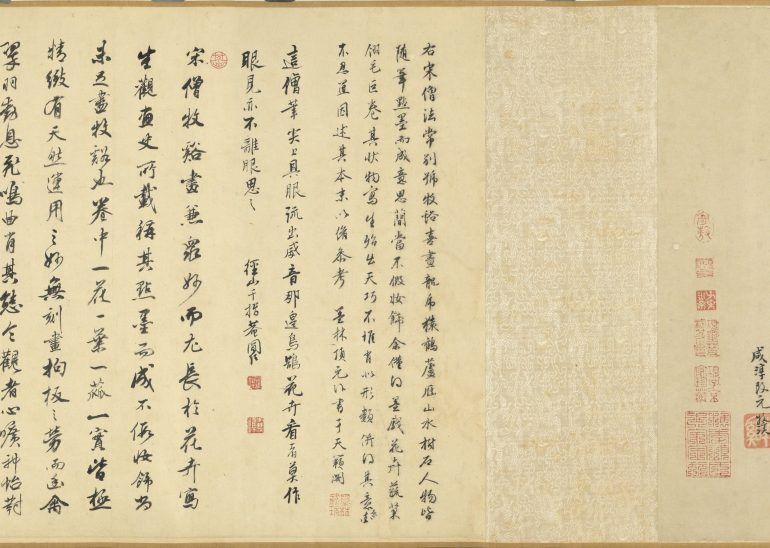 咸淳改元牧溪
右宋僧法常別號牧谿喜畫龍虎猿鶴蘆雁山水樹石人物皆
隨筆點墨而成意思簡當不假妝飾余僅得墨戲花卉蔬菓
翎毛巨卷其狀物寫生殆出天巧不惟肖似形類併得其意
不忍置因述其本末以備參考 墨林項元汴書于天籟閣
這僧筆尖上具眼流出威音那邊鳥鵲花卉看看莫作
眼見亦不離眼思之 徑山千指菴
宋僧牧谿畫兼眾妙而尤長於花卉寫
生觀畫史所載稱其點墨而成不假妝飾為
未足盡牧谿也卷中一花一葉一蓏一實皆極
精緻有天然運用之妙無刻畫拘板之勞而禽
羽息飛鳴曲肖其態令觀者心曠神怡對